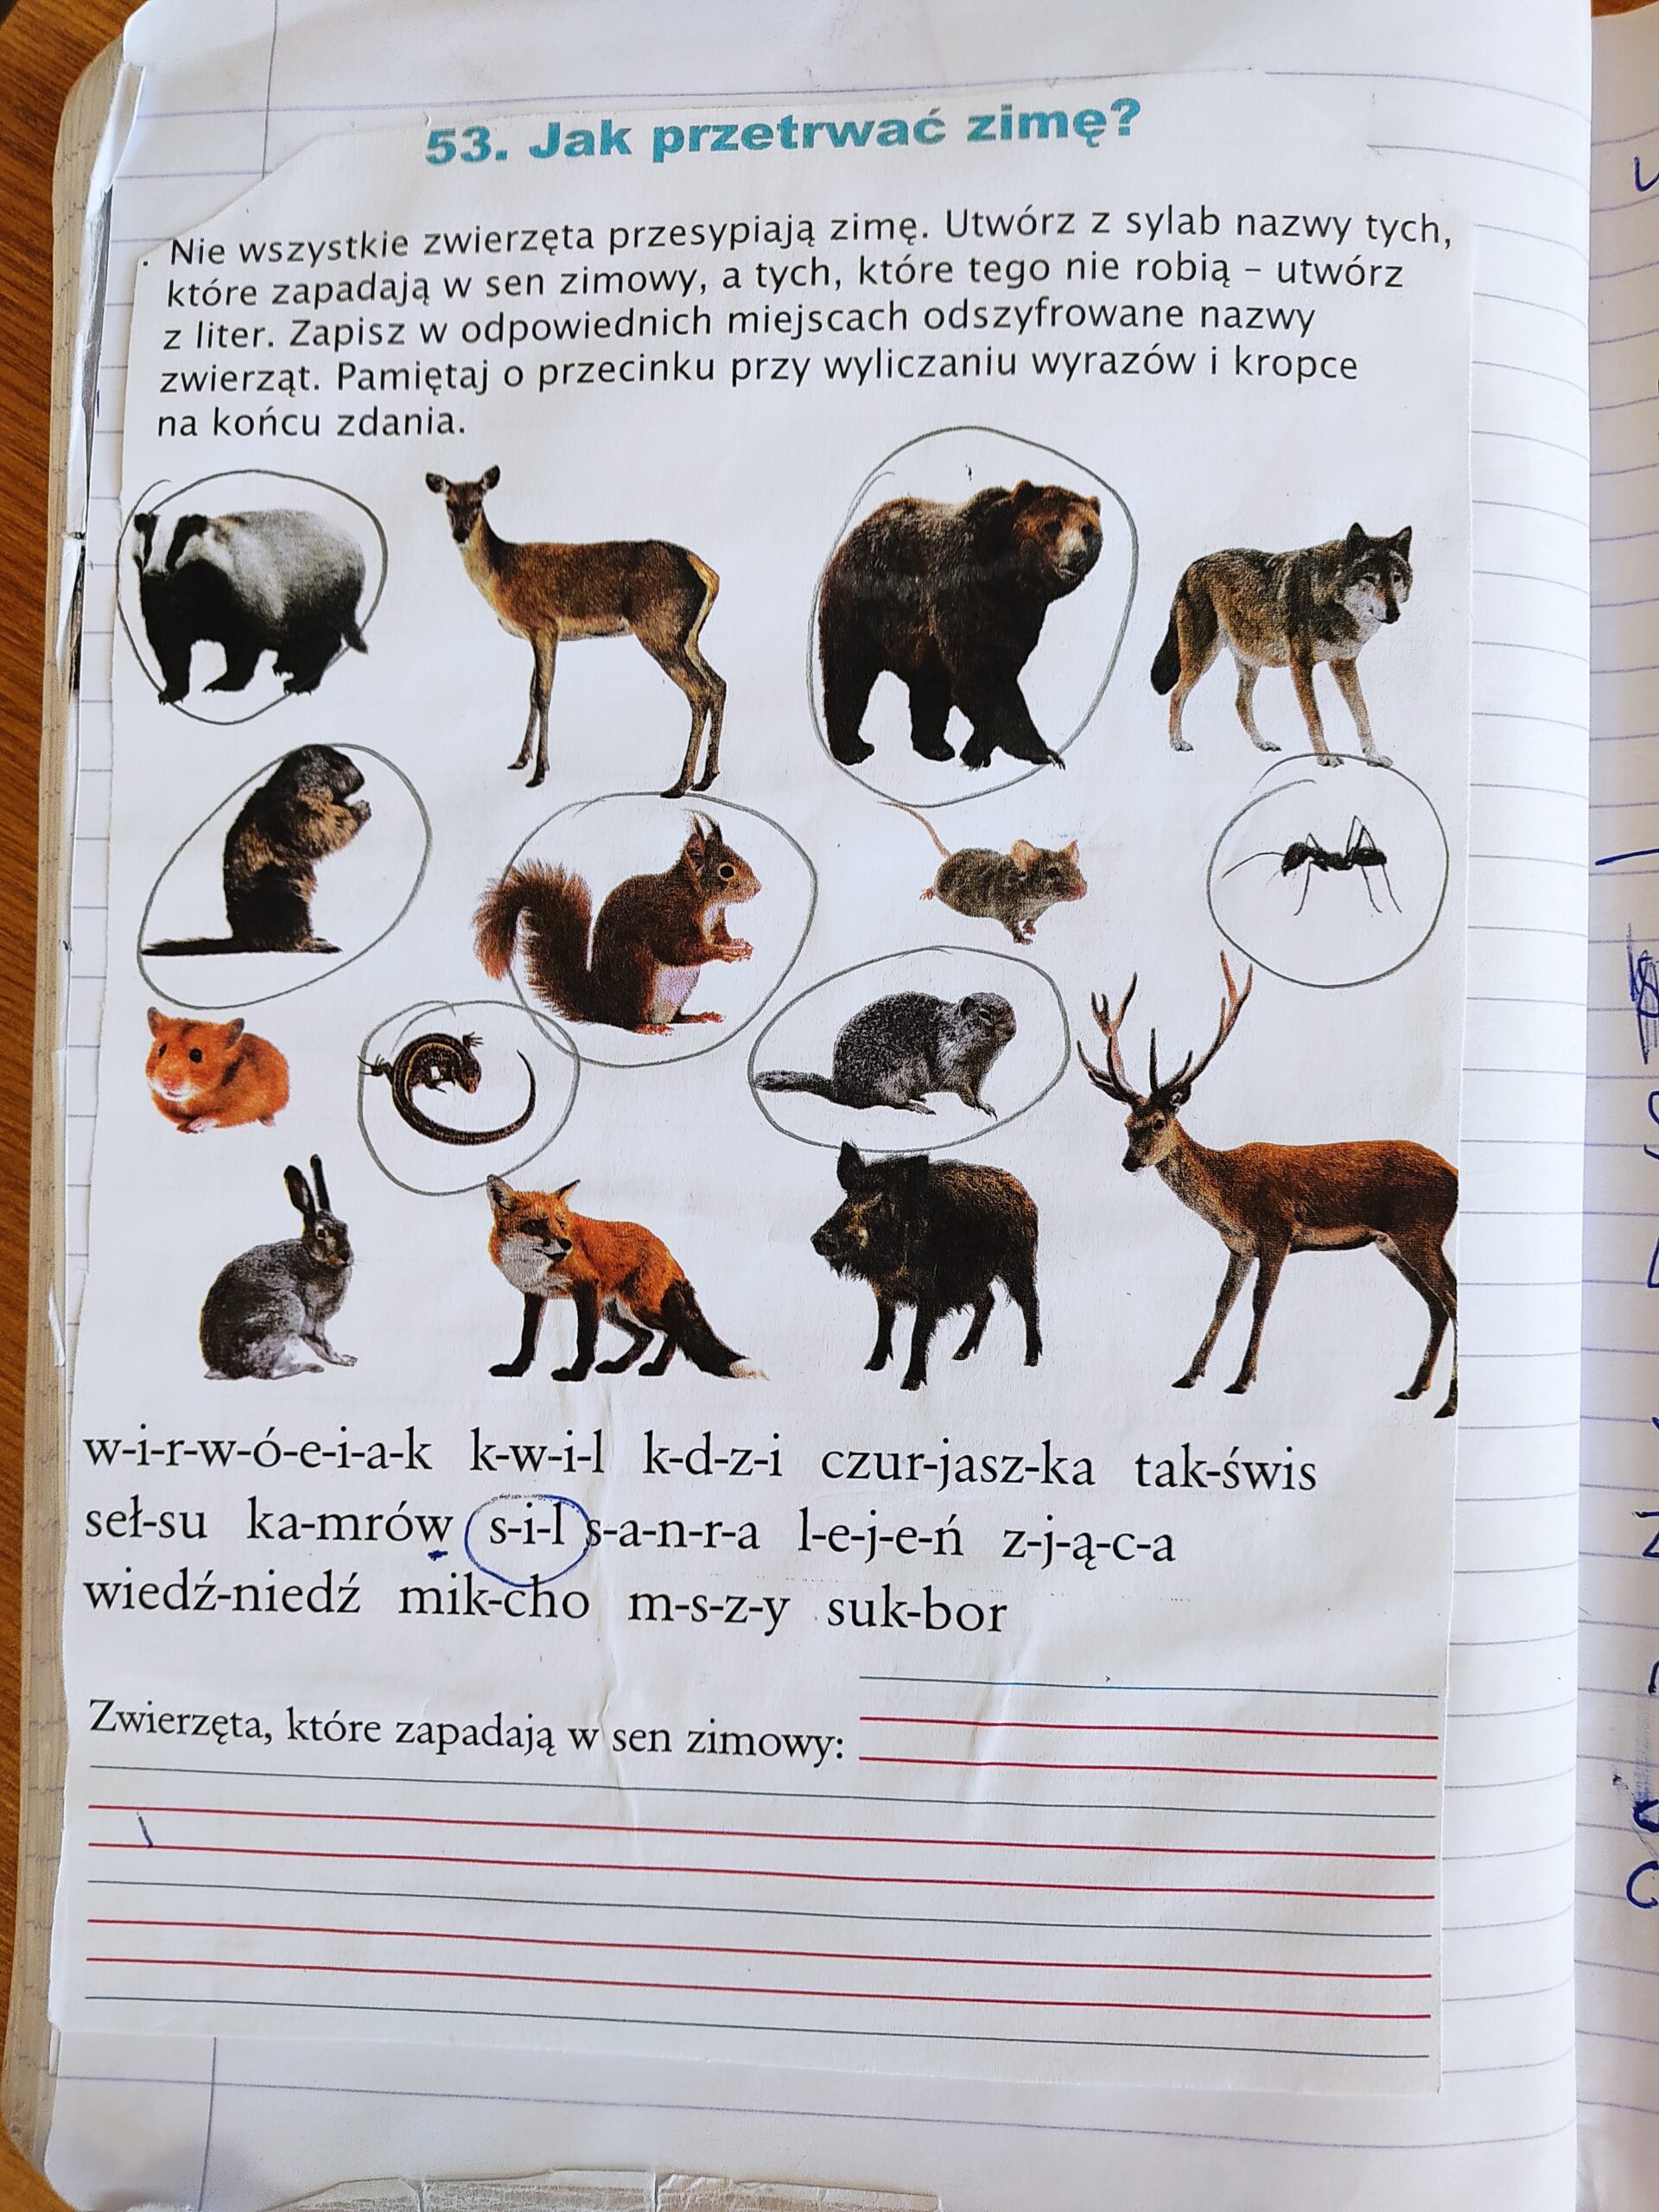 53. Jak przetrwać zimę?
. Nie wszystkie zwierzęta przesypiają zimę. Utwórz z sylab nazwy tych,
które zapadają w sen zimowy, a tych, które tego nie robią – utwórz
z liter. Zapisz w odpowiednich miejscach odszyfrowane nazwy
zwierząt. Pamiętaj o przecinku przy wyliczaniu wyrazów i kropce
na końcu zdania.
w-i-r-w-ó-e-i-a-k k-w-i-l k-d-z-i czur-jasz-ka tak-świs
seł-su ka-mrów s-i-l s-a-n-r-a l-e-j-e-ń z-j-ą-c-a
wiedź-niedź mik-cho m-s-z-y suk-bor
Zwierzęta, które zapadają w sen zimowy: